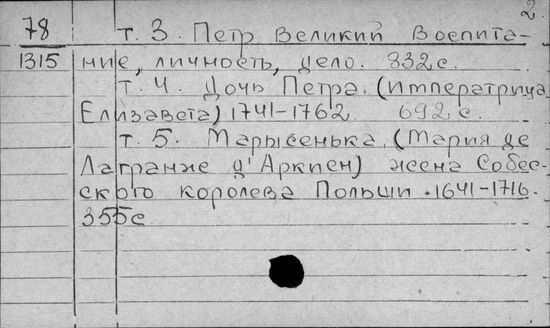 2.
78 т. 3. Петр Великий Воспита-
1315 ние, личность, дело. 332 с.
т. 4. Дочь Петра (императрица
Елизавета) 1741-1762 692 с.
т. 5. Марысенька (Мария де
Лагранж д'Аркиен) жена Собес-
ского королева Польши. 1641-1716.
355 с